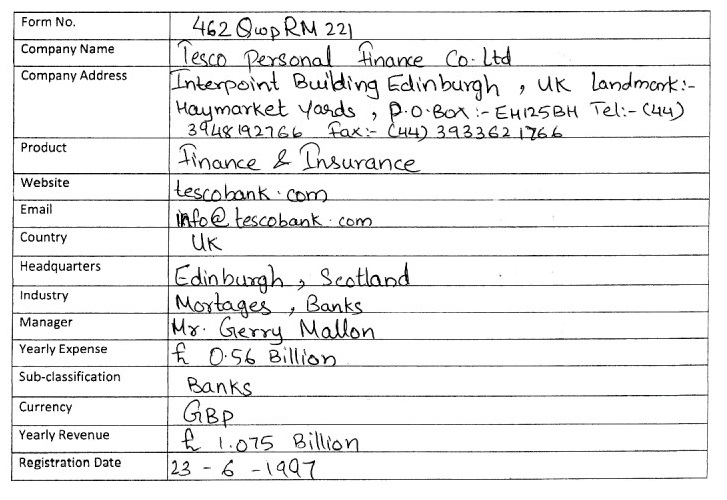 Form No. 462 QwpRM 221
Company Name Tesco Personal Finance Co. Ltd
Company Address Interpoint Building Edinburgh , UK Landmark:-
Haymarket Yards , P.O.Box :- EH125BH Tel:- (44)
3948192766 Fax:- (44) 3933621766
Product Finance & Insurance
Website tescobank.com
Email info@tescobank.com
Country UK
Headquarters Edinburgh , Scotland
Industry Mortages , Banks
Manager Mr. Gerry Mallon
Yearly Expense £ 0.56 Billion
Sub-classification Banks
Currency GBP
Yearly Revenue £ 1.075 Billion
Registration Date 23 - 6 - 1997